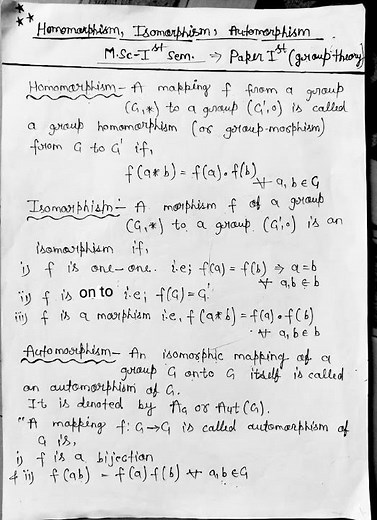 Homomorphism, Isomorphism, Automorphism
M.Sc-Ist Sem. ⇒ Paper Ist (group theory)
Homomorphism - A mapping f from a group
(G,*) to a group (G',o) is called
a group homomorphism (or group-morphism)
from G to G' if,
f(a*b) = f(a)∘f(b)
∀ a,b∈G
Isomorphism:- A morphism f of a group
(G,*) to a group (G',o) is an
isomorphism if,
i) f is one-one. i.e; f(a) = f(b) ⇒ a=b
∀ a,b ∈ b
ii) f is on to i.e; f(G) = G'
iii) f is a morphism i.e, f(a*b) = f(a)∘f(b)
∀ a,b ∈ b
Automorphism - An isomorphic mapping of a
group G onto G itself is called
an automorphism of G.
It is denoted by AG or Aut(G).
"A mapping f: G→G is called automorphism of
G is,
i) f is a bijection
& ii) f(ab) = f(a) f(b) ∀ a,b ∈ G